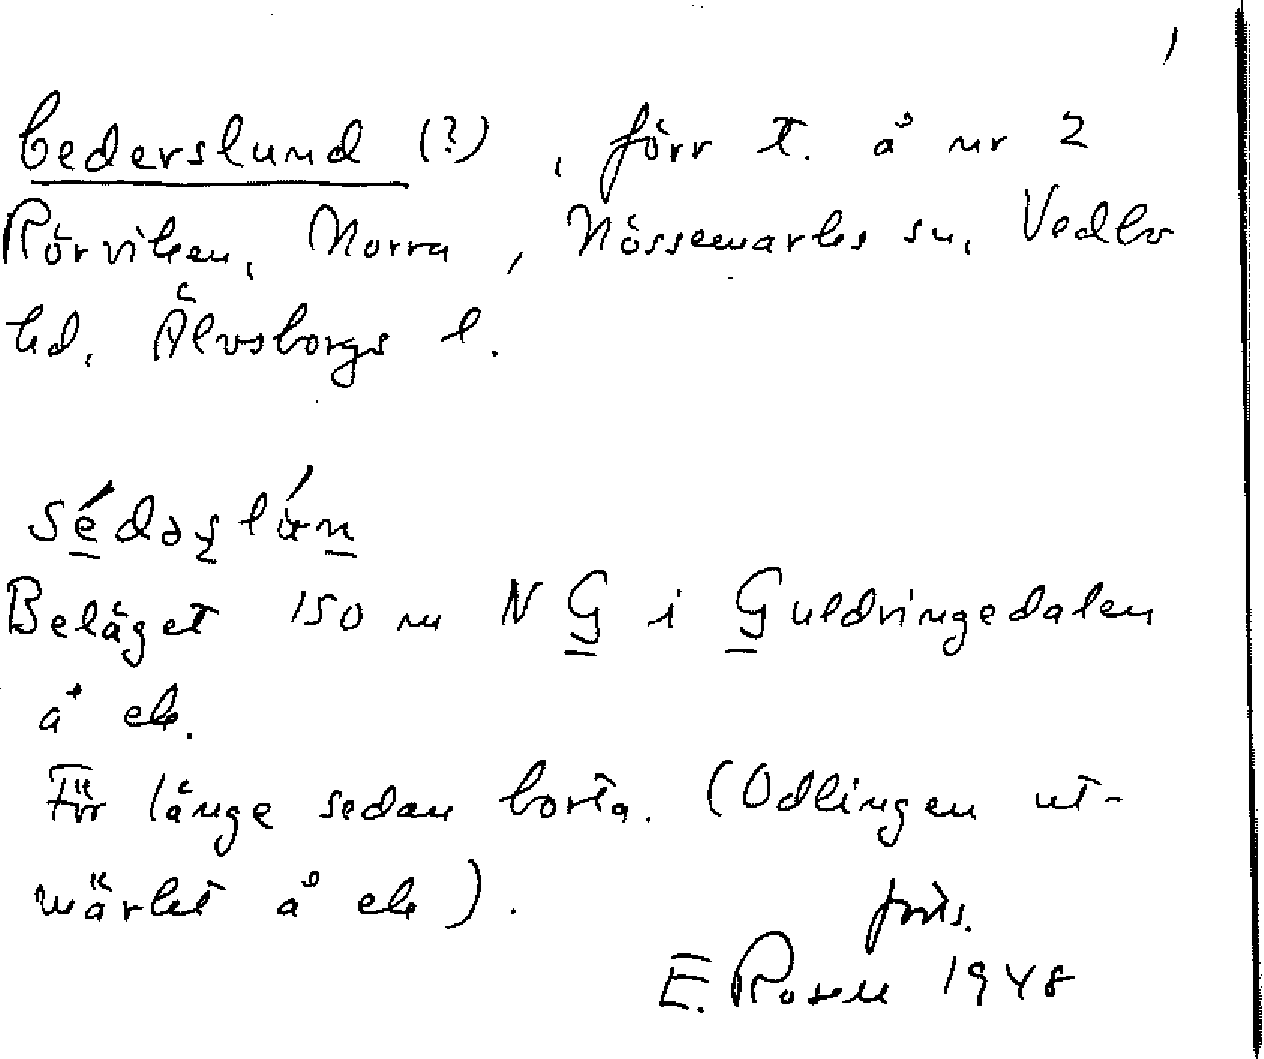 Cederslund (?), förr t. å nr 2
Rörviken, Norra, Nössemarks sn, Vedbo
hd, Älvsborgs l.
Beläget 150 m N G i Guldringedalen
å ek.
För länge sedan borta. (Odlingen ut-
märkt å ek).
forts.
E. Rosell 1948